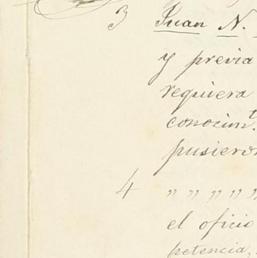 3 Juan N.
y previa
requiera
conocimt.
pusieron
4 " " " " "
el oficio
petencia,